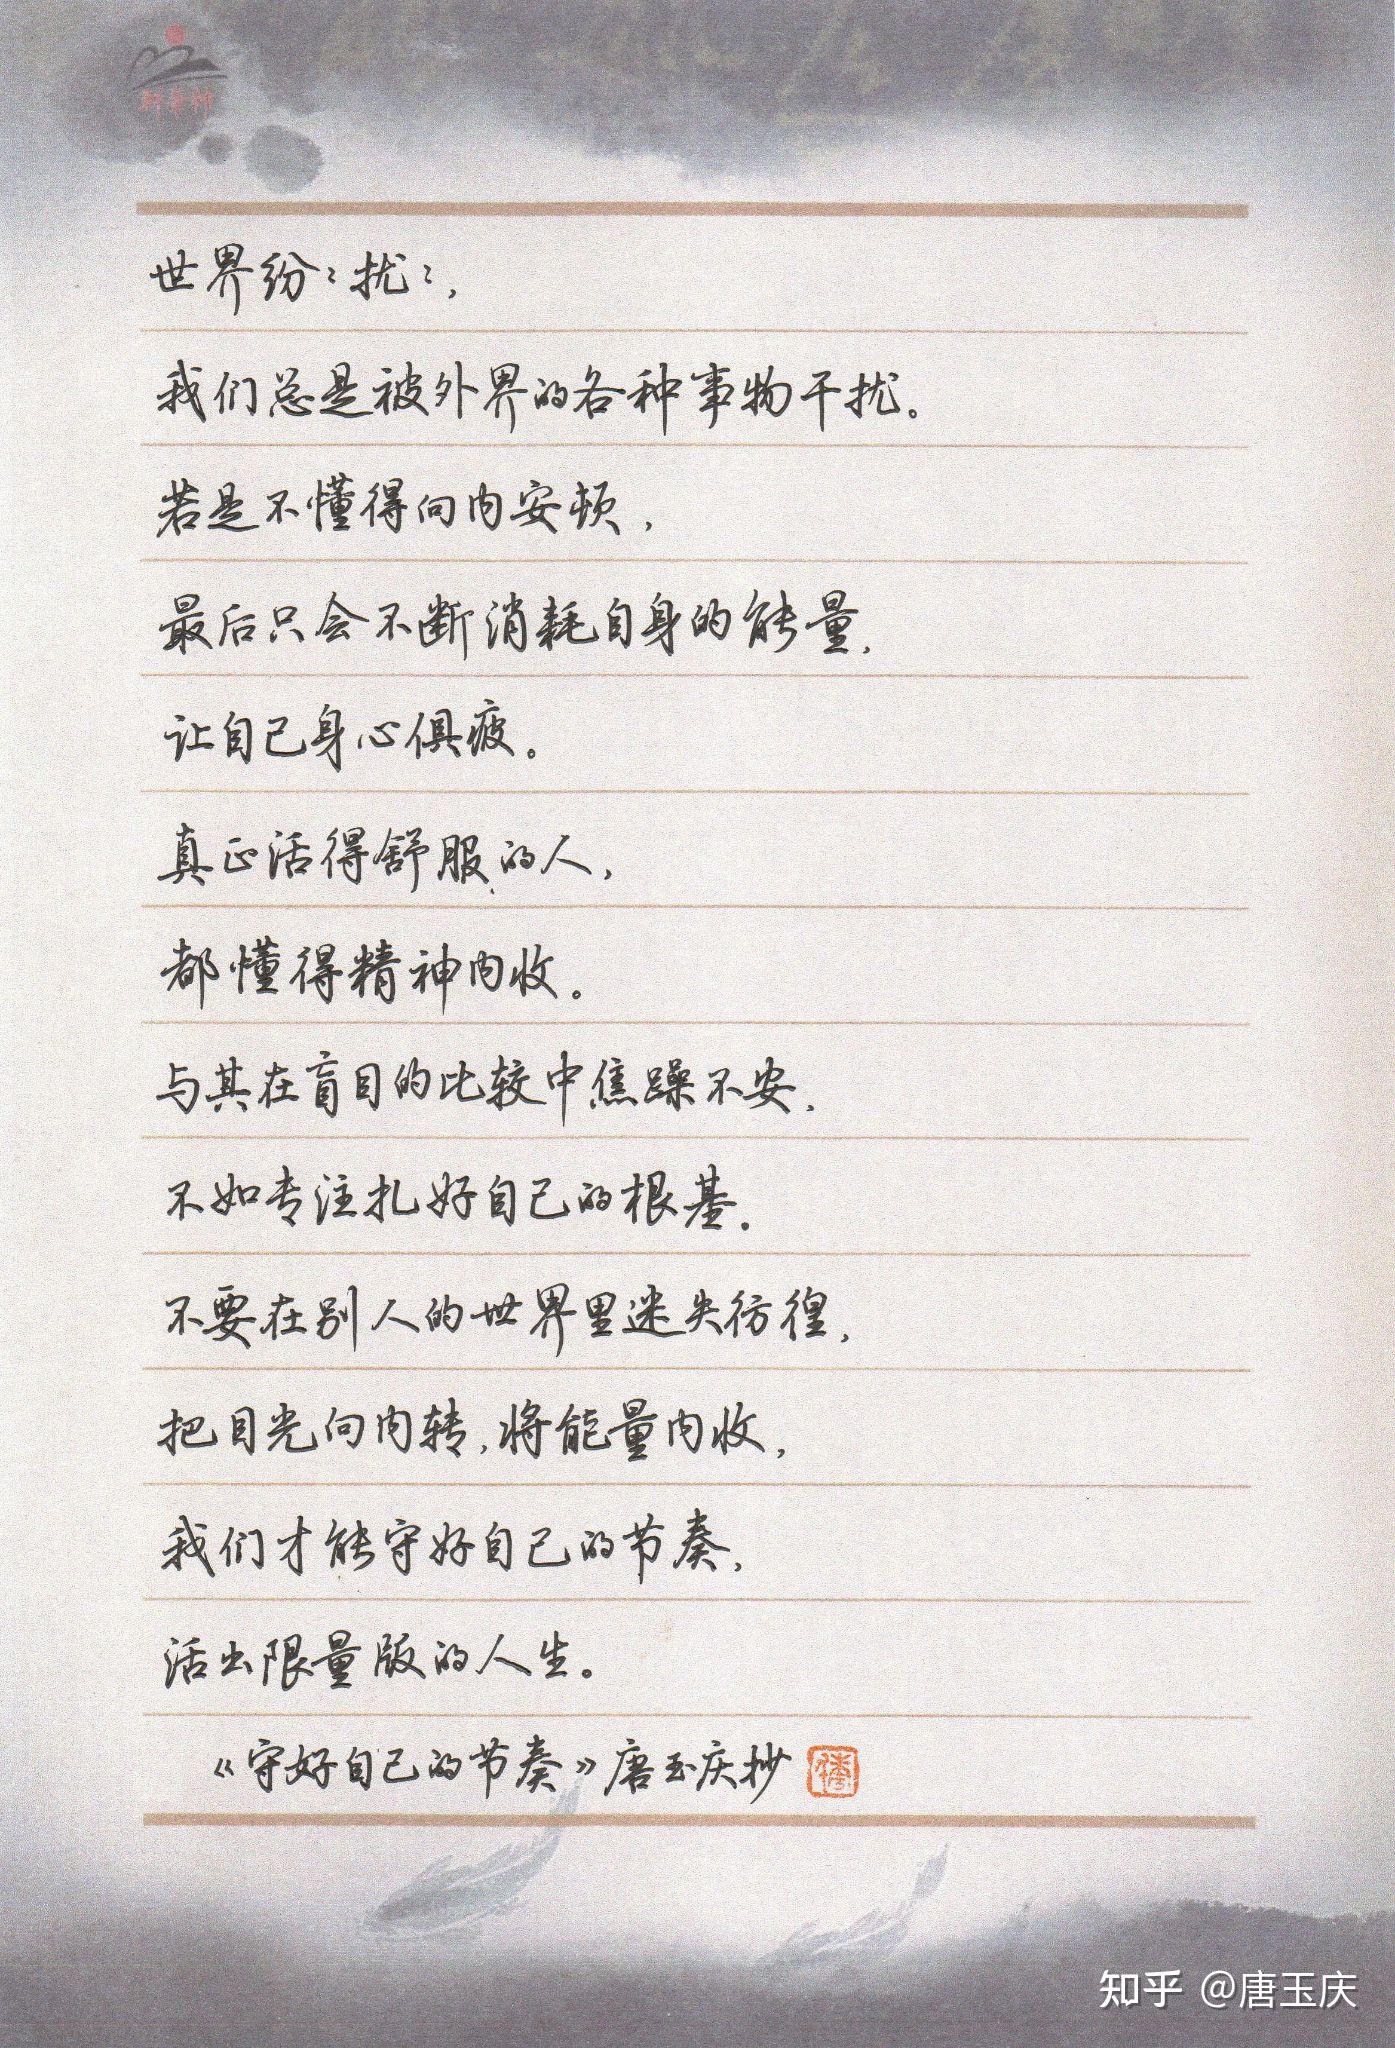 世界纷〻扰〻，
我们总是被外界的各种事物干扰。
若是不懂得向内安顿，
最后只会不断消耗自身的能量，
让自己身心俱疲。
真正活得舒服的人，
都懂得精神内收。
与其在盲目的比较中焦躁不安，
不如专注扎好自己的根基。
不要在别人的世界里迷失彷徨，
把目光向内转，将能量内收，
我们才能守好自己的节奏，
活出限量版的人生。
《守好自己的节奏》唐玉庆抄
知乎 @唐玉庆